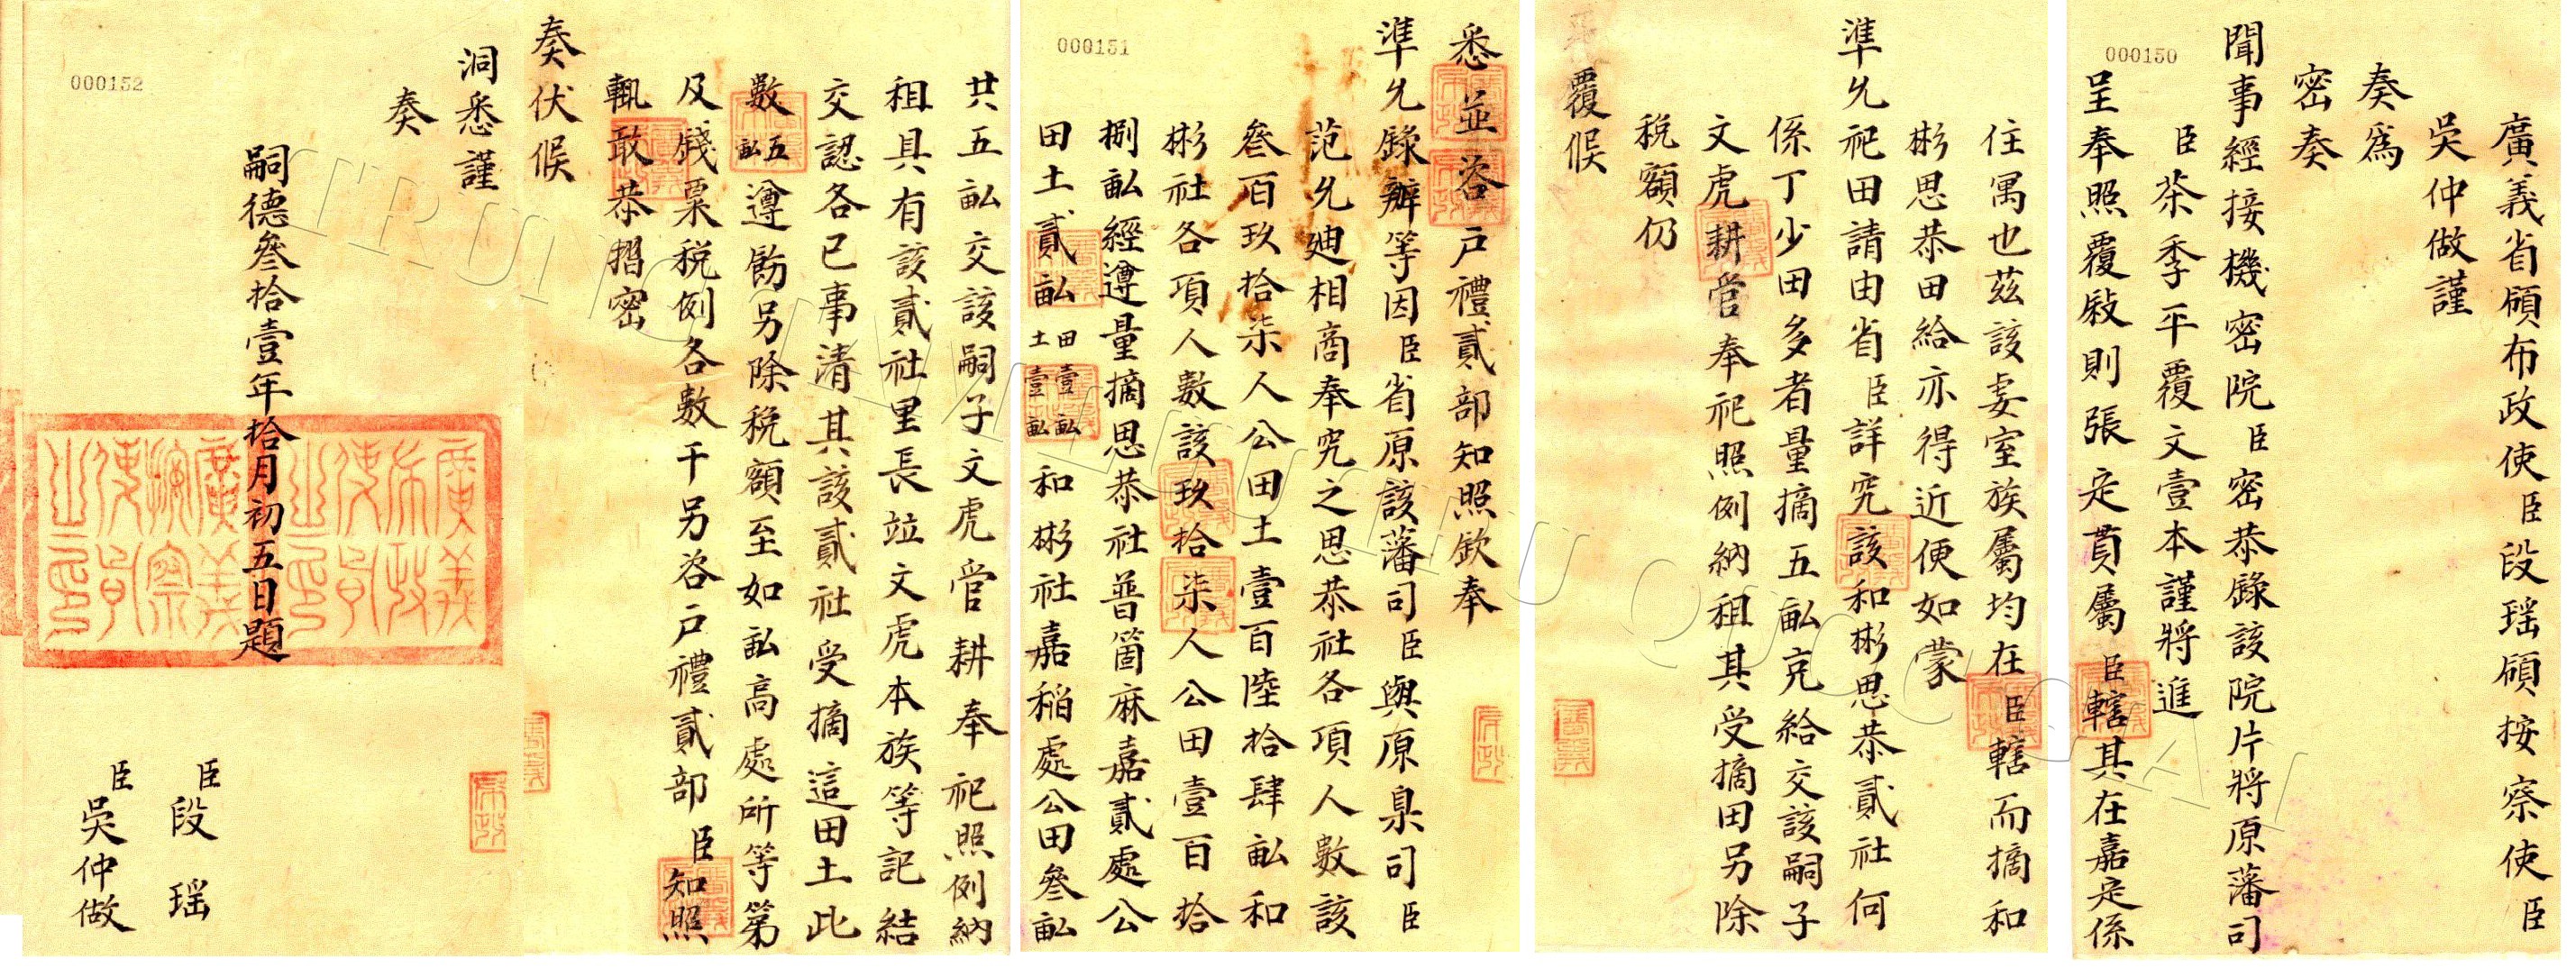 廣義省領布政使臣段瑶領按察使臣
吳仲做謹
奏爲
密奏
聞事經接機密院臣密恭錄該院片將原藩司
臣茶季平覆文壹本謹將進
呈奉照覆敍則張定貫屬臣轄其在嘉定係
000150
住寓也茲該妻室族屬均在臣轄而摘和
彬思恭田給亦得近便如蒙
準允祀田請由省臣詳究該和彬思恭貳社何
係丁少田多者量摘五畝充給交該嗣子
文虎耕管奉祀照例納租其受摘田另除
稅額仍
覆候
悉並咨戶禮貳部知照欽奉
準允錄辦等因臣省原該藩司臣與原臬司臣
范允迪相商奉究之思恭社各項人數該
叁百玖拾柒人公田土壹百陸拾肆畝和
彬社各項人數該玖拾柒人公田壹百拾
捌畝經遵量摘思恭社普箇麻嘉貳處公
田土貳畝田壹畝土壹畝和彬社嘉稲處公田叁畝
000151
共五畝交該嗣子文虎管耕奉祀照例納
租具有該貳社里長竝文虎本族等記結
交認各已事清其該貳社受摘這田土此
數五畝遵飭另除稅額至如畝高處所等第
及錢粟稅例各數干另咨戶禮貳部臣知照
輒敢恭摺密
奏伏候
洞悉謹
奏
嗣德叁拾壹年拾月初五日題
臣段瑶
臣吳仲做
000152